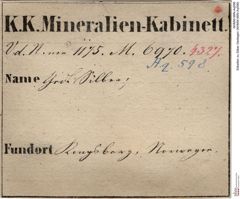 K.K.Mineralien-Kabinett.
1175. M. 6970. 4327.
Aq. 598
Name Ged. Silber;
Fundort Kongsberg, Norwegen.